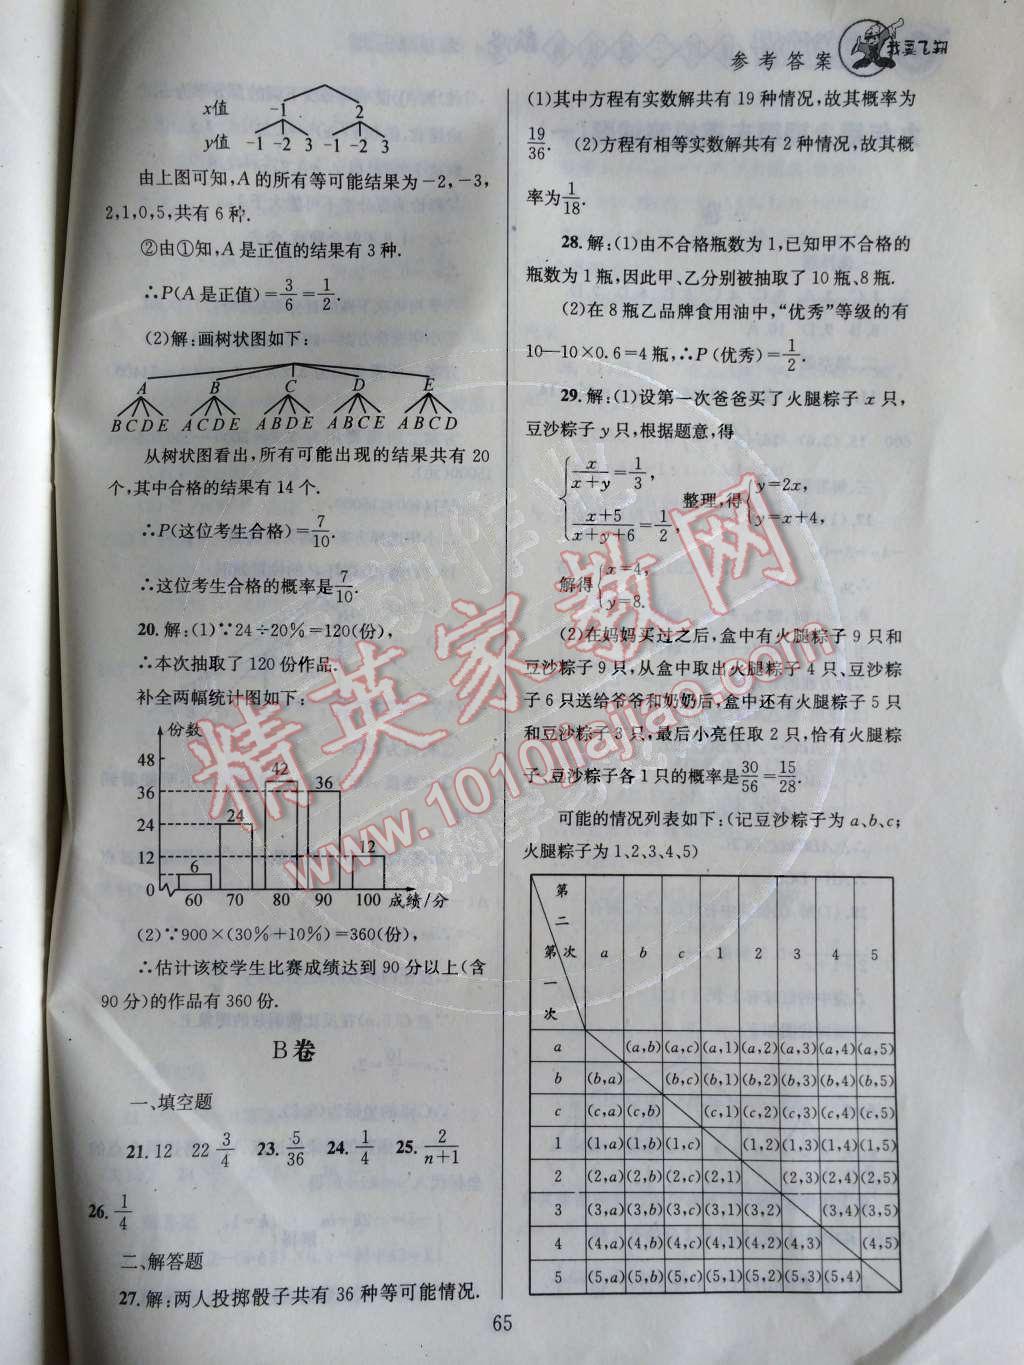 参考答案
我要飞翔
x值 -1 2
y值 -1 -2 3 -1 -2 3
由上图可知,A的所有等可能结果为-2,-3,
2,1,0,5,共有6种.
②由①知,A是正值的结果有3种.
∴P(A是正值)=3/6=1/2.
(2)解:画树状图如下:
A B C D E
BCDE ACDE ABDE ABCE ABCD
从树状图看出,所有可能出现的结果共有20
个,其中合格的结果有14个.
∴P(这位考生合格)=7/10.
∴这位考生合格的概率是7/10.
20.解:(1)∵24÷20%=120(份),
∴本次抽取了120份作品.
补全两幅统计图如下:
份数
48
36
24
12
0
6 24 42 36 12
60 70 80 90 100 成绩/分
(2)∵900×(30%+10%)=360(份),
∴估计该校学生比赛成绩达到90分以上(含
90分)的作品有360份.
B卷
一、填空题
21.12 22 3/4 23.5/36 24.1/4 25.2/(n+1)
26.1/4
二、解答题
27.解:两人投掷骰子共有36种等可能情况.
(1)其中方程有实数解共有19种情况,故其概率为
19/36. (2)方程有相等实数解共有2种情况,故其概
率为1/18.
28.解:(1)由不合格瓶数为1,已知甲不合格的
瓶数为1瓶,因此甲、乙分别被抽取了10瓶、8瓶.
(2)在8瓶乙品牌食用油中,“优秀”等级的有
10—10×0.6=4瓶,∴P(优秀)=1/2.
29.解:(1)设第一次爸爸买了火腿粽子x只,
豆沙粽子y只,根据题意,得
{x/(x+y)=1/3, (x+5)/(x+y+6)=1/2, 整理,得{y=2x, y=x+4,
解得{x=4, y=8.
(2)在妈妈买过之后,盒中有火腿粽子9只和
豆沙粽子9只,从盒中取出火腿粽子4只、豆沙粽
子6只送给爷爷和奶奶后,盒中还有火腿粽子5只
和豆沙粽子3只,最后小亮任取2只,恰有火腿粽
子、豆沙粽子各1只的概率是30/56=15/28.
可能的情况列表如下:(记豆沙粽子为a、b、c;
火腿粽子为1、2、3、4、5)
第二次 第一次 a b c 1 2 3 4 5
a (a,b) (a,c) (a,1) (a,2) (a,3) (a,4) (a,5)
b (b,a) (b,c) (b,1) (b,2) (b,3) (b,4) (b,5)
c (c,a) (c,b) (c,1) (c,2) (c,3) (c,4) (c,5)
1 (1,a) (1,b) (1,c) (1,2) (1,3) (1,4) (1,5)
2 (2,a) (2,b) (2,c) (2,1) (2,3) (2,4) (2,5)
3 (3,a) (3,b) (3,c) (3,1) (3,2) (3,4) (3,5)
4 (4,a) (4,b) (4,c) (4,1) (4,2) (4,3) (4,5)
5 (5,a) (5,b) (5,c) (5,1) (5,2) (5,3) (5,4)
65
精英家教网
www.1010jiajiao.com